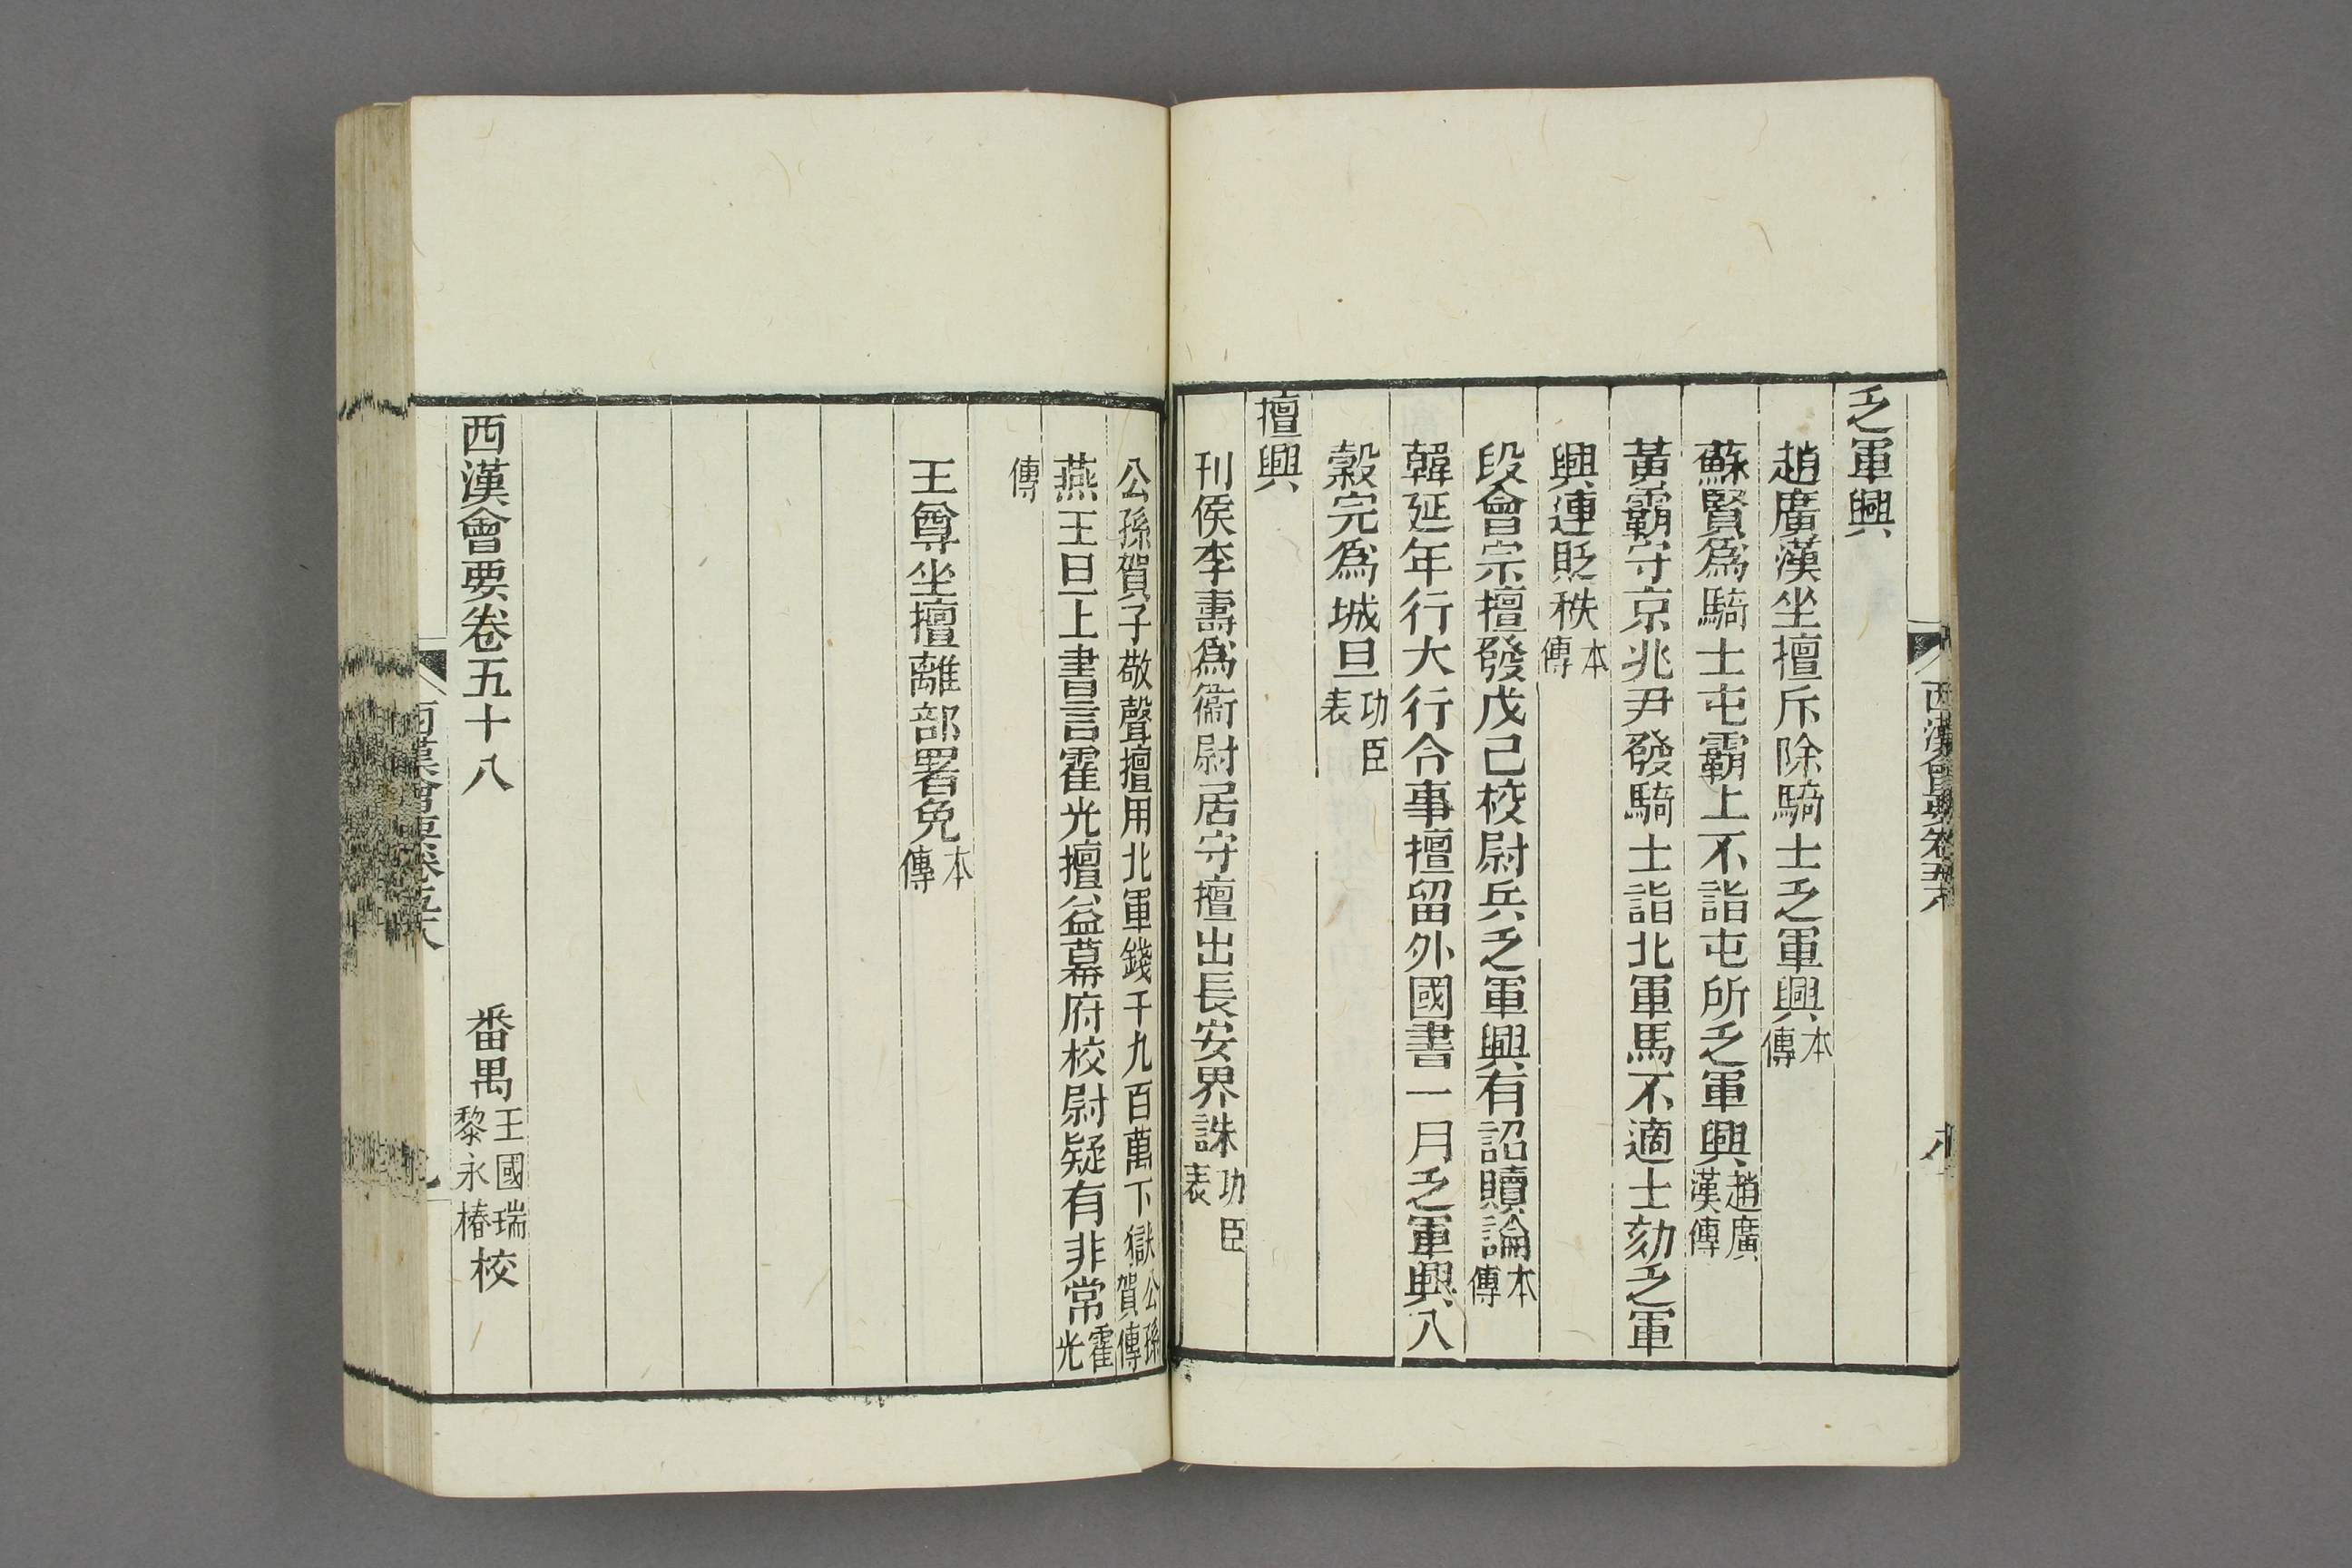 乏軍興
趙廣漢坐擅斥除騎士乏軍興本傳
蘇賢爲騎士屯霸上不詣屯所乏軍興趙廣漢傳
黃霸守京兆尹發騎士詣北軍馬不適士劾乏軍
興連貶秩本傳
段會宗擅發戊己校尉兵乏軍興有詔贖論本傳
韓延年行大行令事擅留外國書一月乏軍興入
穀完爲城旦功臣表
擅興
刊侯李壽爲衞尉居守擅出長安界誅功臣表
西漢會要卷五十八
八
公孫賀子敬聲擅用北軍錢千九百萬下獄公孫賀傳
燕王旦上書言霍光擅益幕府校尉疑有非常霍光
傳
王尊坐擅離部署免本傳
西漢會要卷五十八
番禺王國瑞黎永椿校
西漢會要卷五十八